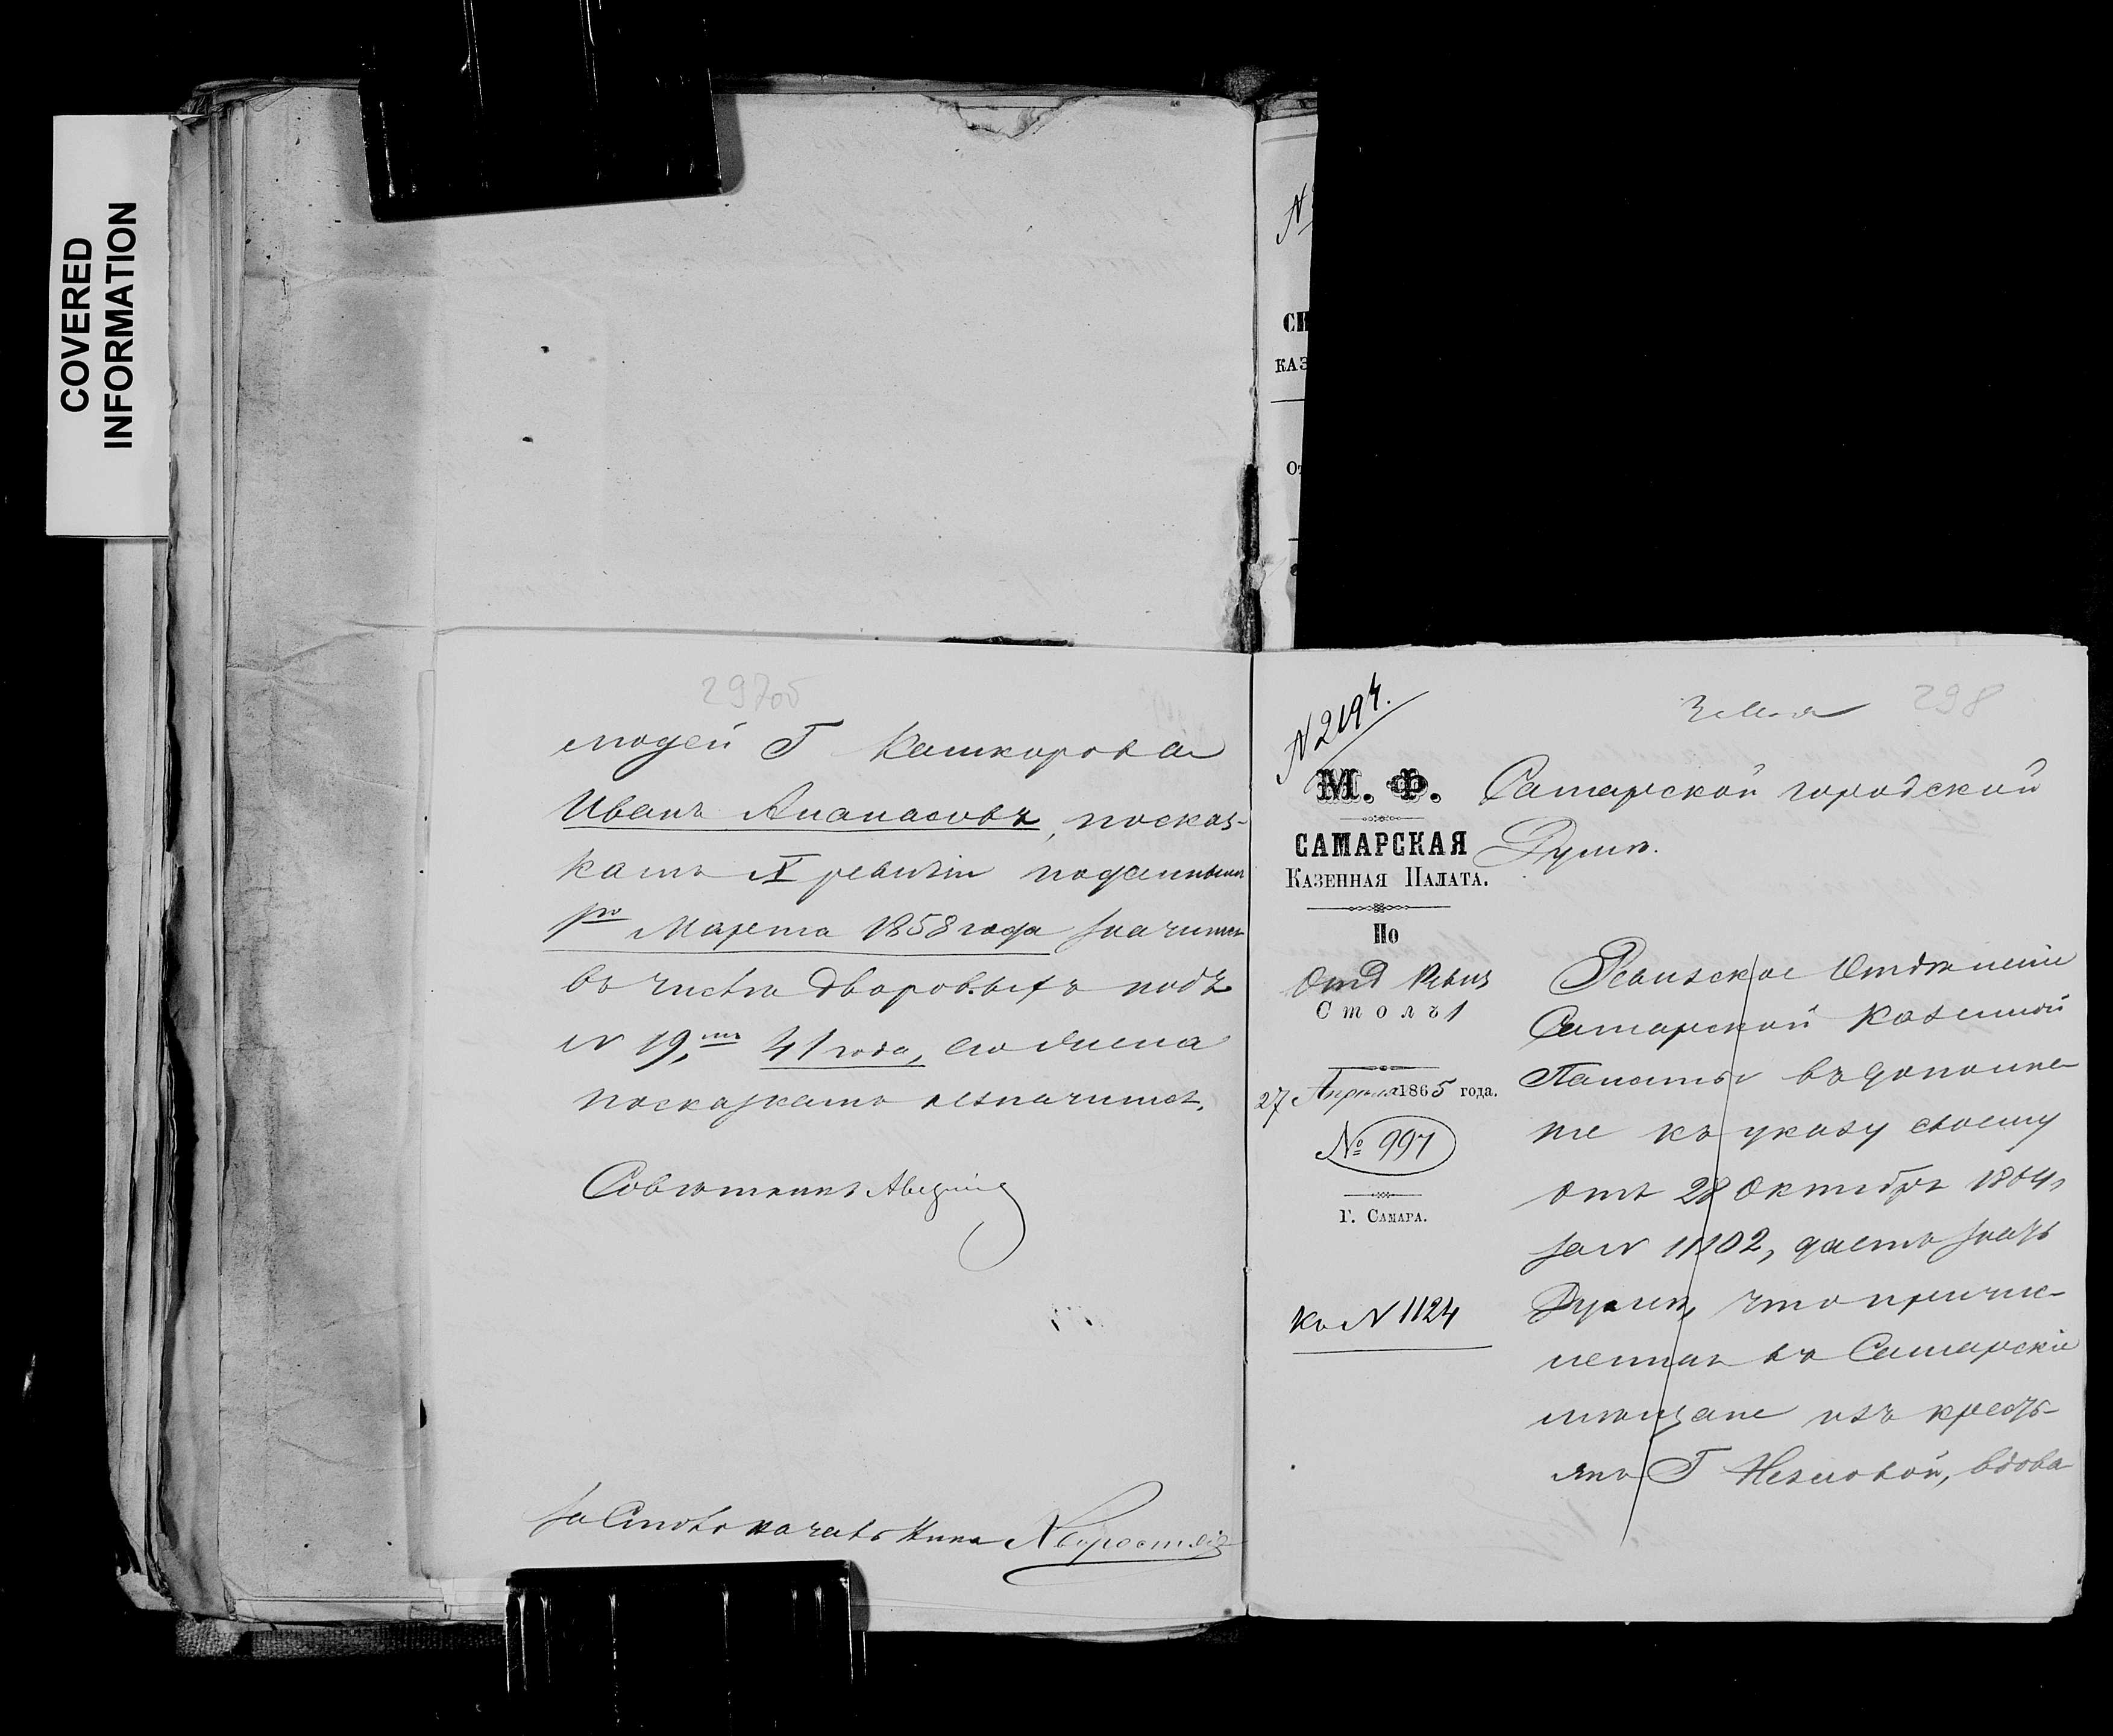 COVERED
INFORMATION
297об
людей Г Кашкарова
Иванъ Анапасовъ, посказ-
камъ X ревизіи поданнымъ
1го Марта 1858 года значится
въ числѣ дворовыхъ подъ
N 19, 41 года,
посказкамъ незначится.
Совѣтникъ
за Столоначальника
N
СК
КАЗ
От
N 2194.
298
М. Ф.
САМАРСКАЯ
КАЗЕННАЯ ПАЛАТА.
По
Отд Ревиз
Столъ 1
27 Апреля 1865 года.
№ 997
Г. САМАРА.
Къ N 1124
Самарской городской
Думѣ.
Ревизское Отдѣленіе
Самарской Казенной
Палаты въ дополне-
ніе къ указу своему
отъ 28 Октября 1864,
за N 11102, даетъ знать
Думѣ, что причис-
ленная въ Самарскіе
мѣщане изъ кресть-
янъ Г вдова